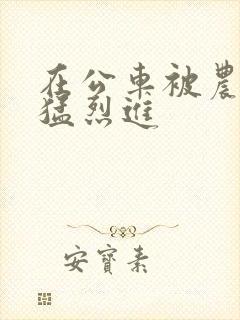 在公車被農
猛烈進
安寶素